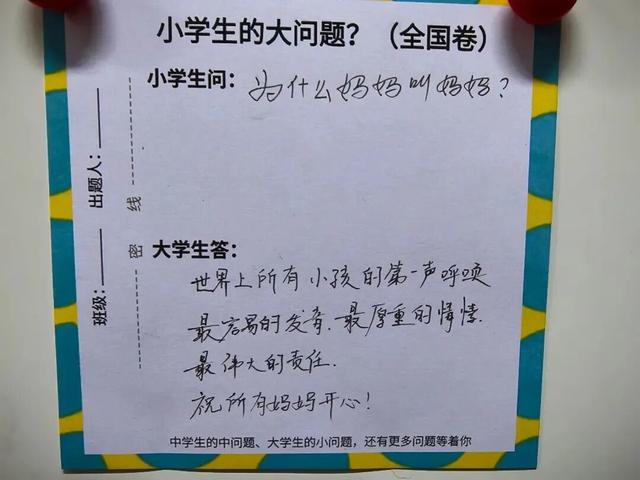 小学生的大问题？（全国卷）
小学生问：为什么妈妈叫妈妈？
出题人：
班级：
线
密
大学生答：
世界上所有小孩的第一声呼唤
最容易的发音.最厚重的情愫.
最伟大的责任.
祝所有妈妈开心！
中学生的中问题、大学生的小问题，还有更多问题等着你